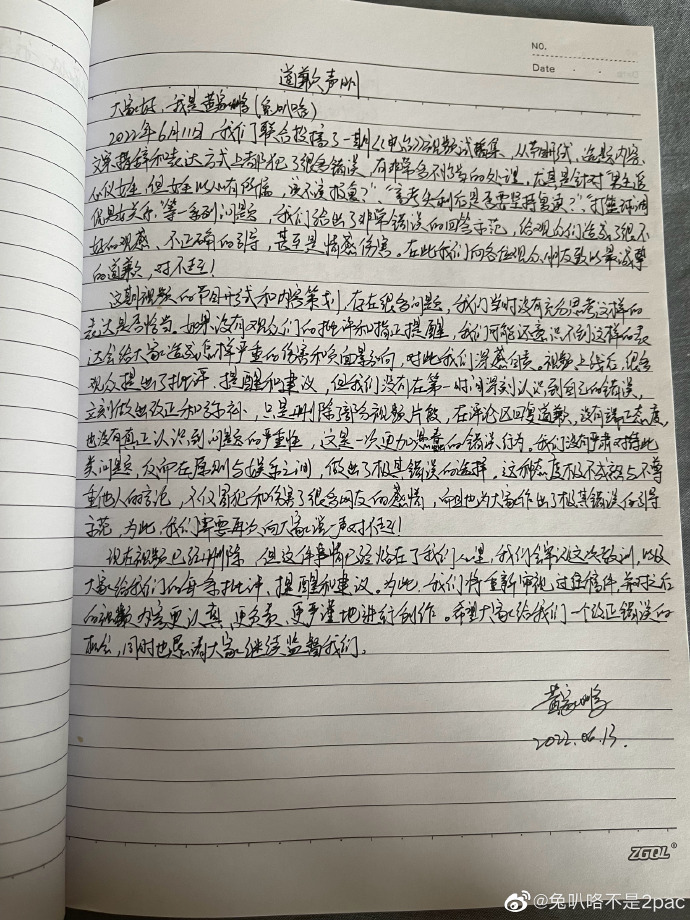 NO.
Date
道歉声明
大家好,我是黄家鹏(兔叭咯)
2022年6月11日,我们联合投稿了一期《电台》视频试播集,从节目形式、选题内容、
文案措辞和表达方式上都犯了很多错误,有非常多不恰当的处理。尤其是针对"男主医
心仪女生,但女生心有所属,该不该报复?""高考失利后是否要坚持复读?""打篮球调
侃男女关系"等一系列问题,我们给出了非常错误的回答示范,给观众们造成了很不
好的观感、不正确的引导,甚至是情感伤害。在此我们向各位观众朋友致以最诚挚
的道歉,对不起!
这期视频的节目形式和内容策划,存在很多问题,我们当时没有充分思考这样的
表达是否恰当。如果没有观众们的批评和指正提醒,我们可能还意识不到这样的表
达会给大家造成怎样严重的伤害和负面影响,对此我们深感自责。视频上线后,很多
观众提出了批评、提醒和建议,但我们没有在第一时间深刻认识到自己的错误,
立刻做出改正和弥补,只是删除了部分视频片段,在评论区回复道歉,没有端正态度,
也没有真正认识到问题的严重性,这是一次更加愚蠢的错误行为。我们没有严肃对待此
类问题,反而在原则与娱乐之间,做出了极其错误的选择。这种态度极不成熟与不尊
重他人的言论,不仅冒犯和伤害了很多网友的感情,而且也为大家作出了极其错误的引导
示范,为此,我们需要再次向大家说一声对不起!
现在视频已经删除,但这件事情已经烙在了我们心里,我们会牢记这次教训,以及
大家给我们的每条批评、提醒和建议。为此,我们将重新审视过往稿件,并对之后
的视频内容更认真、更负责、更严谨地进行创作。希望大家给我们一个改正错误的
机会,同时也恳请大家继续监督我们。
黄家鹏
2022.06.13.
ZGQL®
@兔叭咯不是2pac